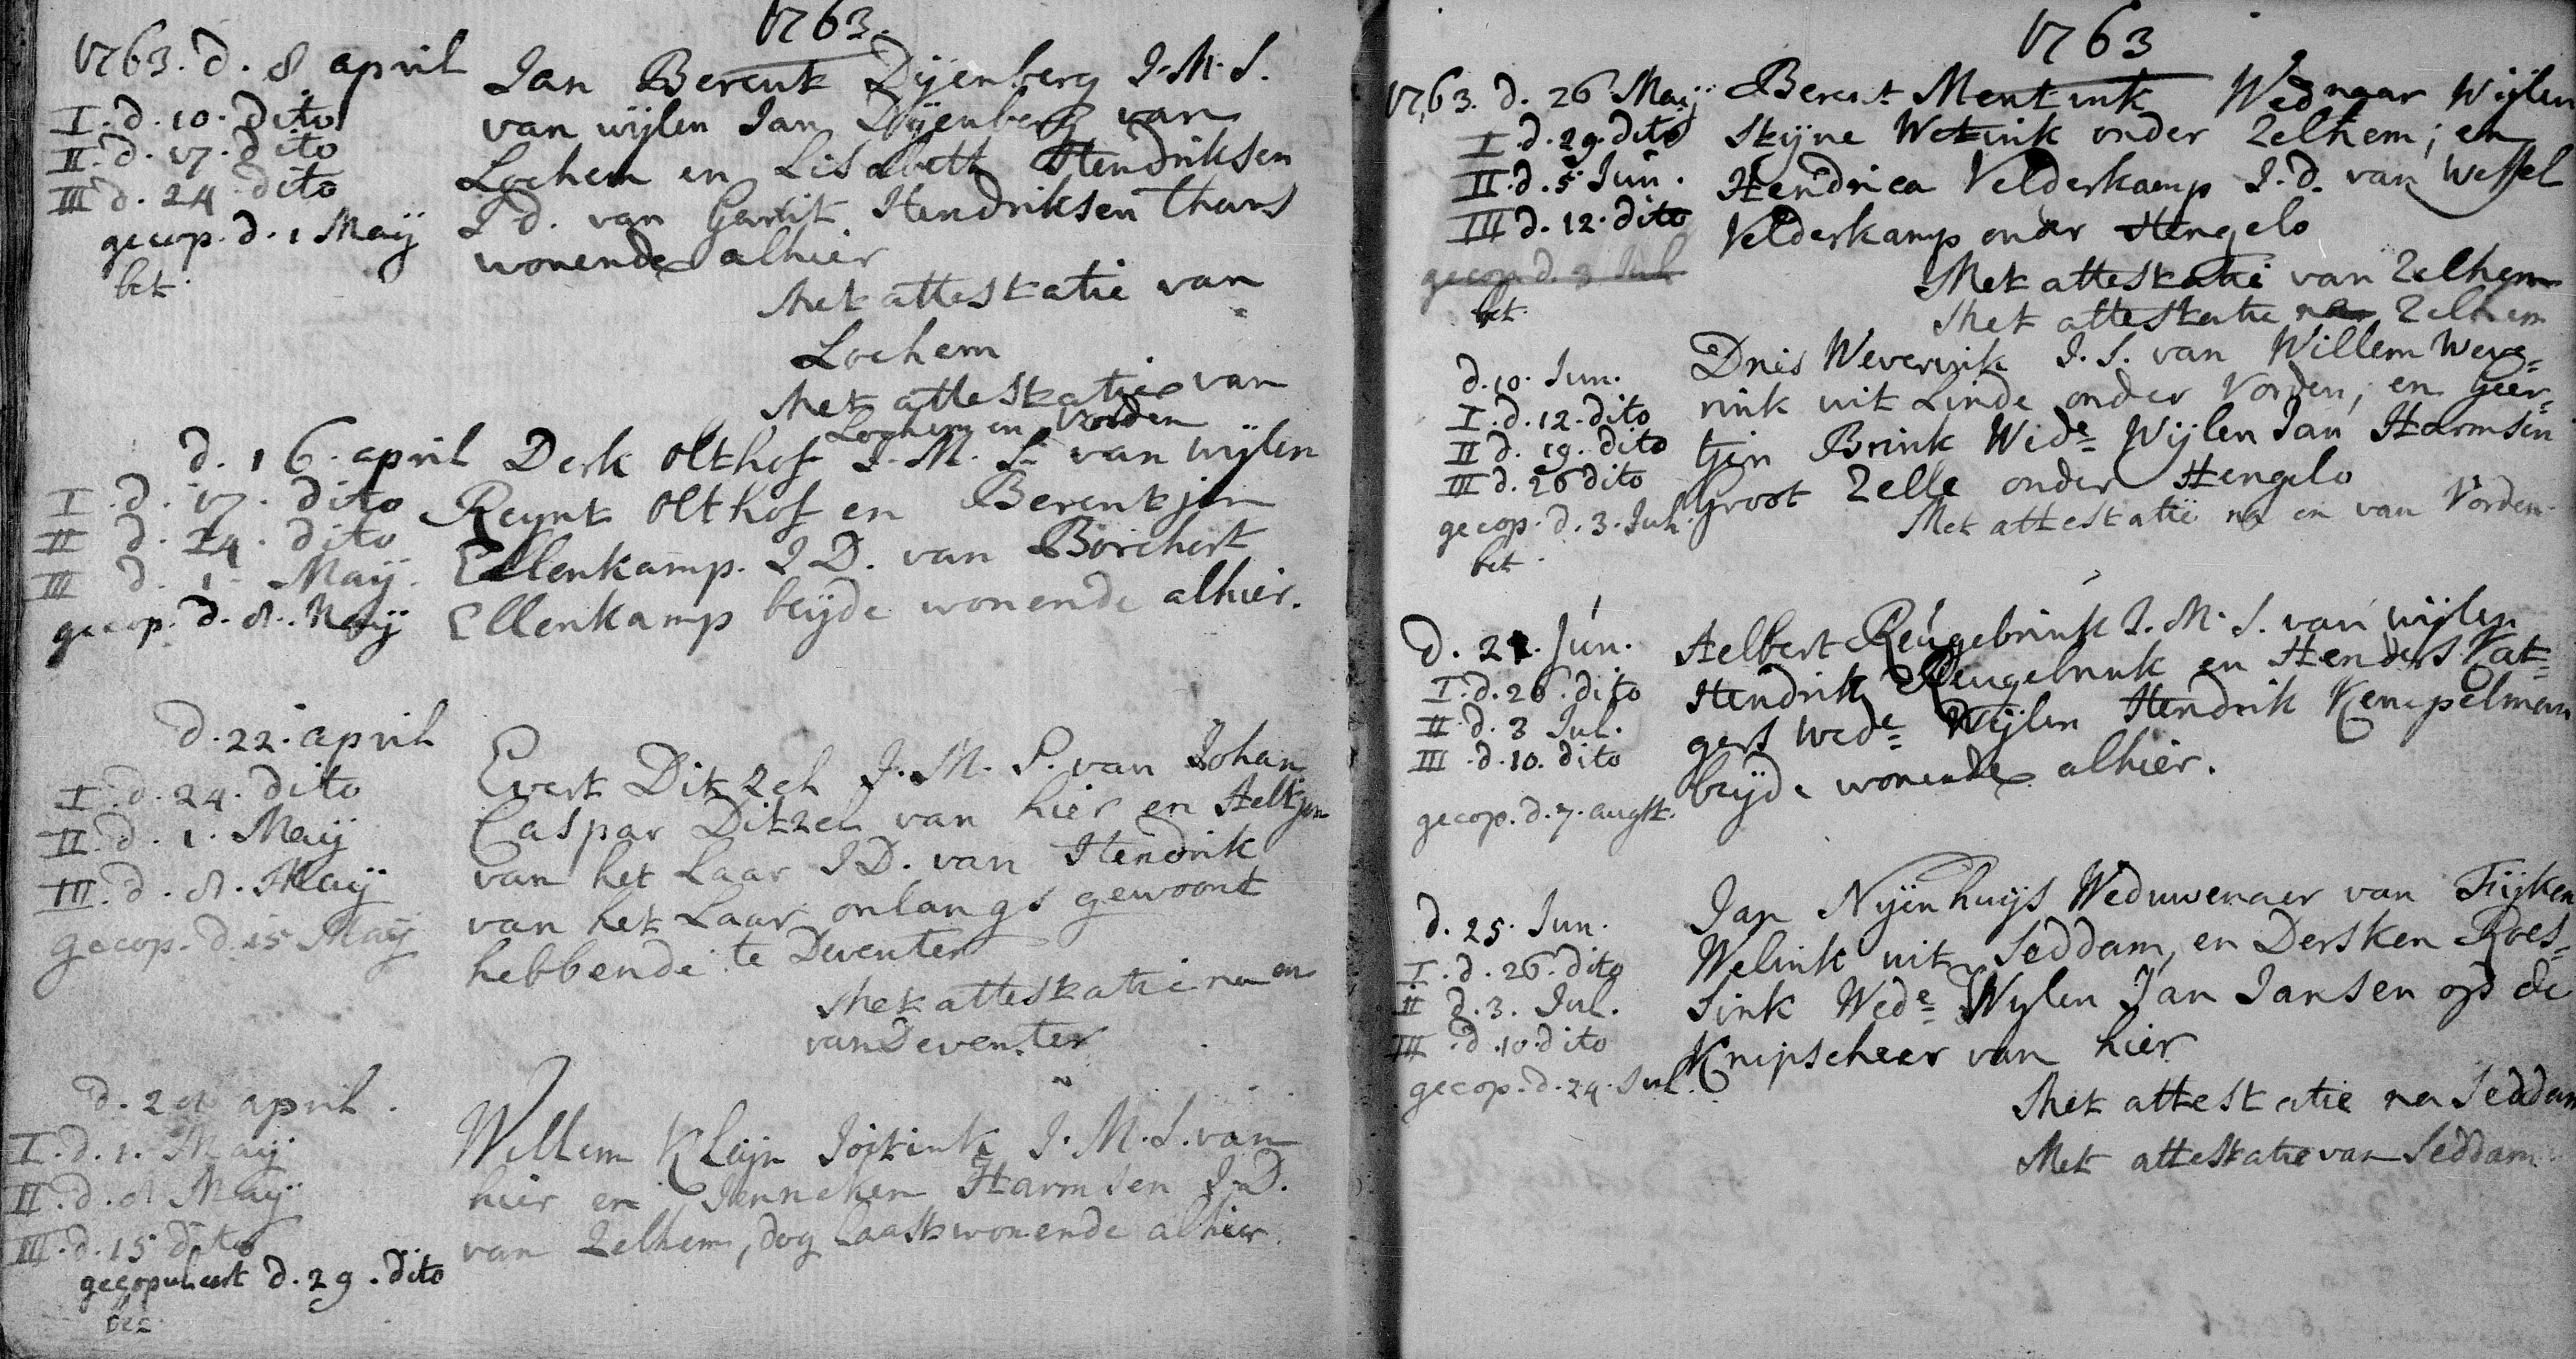 1763.
1763. d. 8 april
I. d. 10. dito
II. d. 17. dito
III d. 24 dito
gecop. d. 1 Maij
bet.
Jan Berent Dijenberg J. M. S.
van wijlen Jan Dijenberg van
Lochem en Lisabeth Hendriksen
J d. van Gerrit Hendriksen thans
wonende alhier
Met attestatie van
Lochem
Met attestatie van
Lochem en Vorden
d. 16. april
I. d. 17. dito
II d. 24. dito
III d. 1 Maij.
gecop. d. 8. Maij
Derk Olthof J. M. S. van wijlen
Reynt Olthof en Berentjen
Ellenkamp. J D. van Borchert
Ellenkamp beijde wonende alhier.
d. 22. april
I. d. 24. dito
II. d. 1. Maij
III. d. 8. Maij
gecop. d. 15 Maij
Evert Ditzel J. M. S. van Johan
Caspar Ditzel van hier en Aeltjen
van het Laar J D. van Hendrik
van het Laar onlangs gewoont
hebbende te Deventer
Met attestatie na en
van Deventer
d. 28 april.
I. d. 1. Maij
II. d. 8 Maij
III. d. 15 dito
gecopuleert d. 29. dito
bet
Willem Kleijn J. M. S. van
hier en Jenneken Harmsen J. D.
van Zelhem, dog laatst wonende alhier.
1763
1763. d. 26 Maij
I. d. 29. dito
II. d. 5. Jun.
III d. 12. dito
gecop. d. 3 Jul
bet.
Berent Mentink Wednaar Wijlen
Stijne Wetink onder Zelhem; en
Hendrica Velderkamp J. d. van Wessel
Velderkamp onder Hengelo
Met attestatie van Zelhem
Met attestatie na Zelhem
d. 10. Jun.
I. d. 12. dito
II d. 19. dito
III d. 26 dito
gecop. d. 3. Jul.
bet.
Dnis Weverink J. S. van Willem Weve=
rink uit Linde onder Vorden, en Geer=
tjen Brink Wede Wijlen Jan Harmsen
Groot Zelle onder Hengelo
Met attestatie na en van Vorden
d. 24. Jun.
I. d. 26. dito
II. d. 3 Jul.
III. d. 10. dito
gecop. d. 7. augst.
Aelbert Reugebrink J. M. S. van wijlen
Hendrik Reugebrink en Henders Vat=
gers Wede Wijlen Hendrik Kempelman
beijde wonende alhier.
d. 25. Jun.
I. d. 26. dito
II d. 3. Jul.
III. d. 10. dito
gecop. d. 24. Jul.
Jan Nijenhuijs Weduwenaer van Fijken
Welink uit Seddam, en Dersken Roes=
sink Wede Wylen Jan Jansen op de
Knipscheer van hier
Met attestatie na Seddam
Met attestatie van Seddam